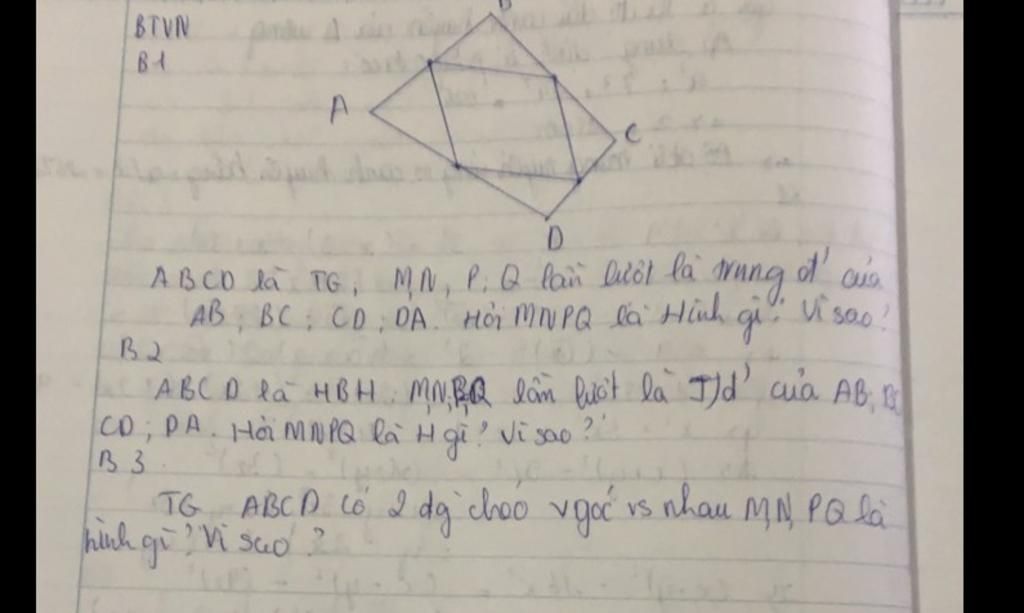 BTVN
B1
B
A
C
D
ABCD là TG, M,N, P, Q lần lượt là trung đ' của
AB; BC; CD; DA. Hỏi MNPQ là Hình gì? Vì sao?
B2
ABCD là HBH. M,N,P,Q lần lượt là T/đ' của AB, BC
CD; DA. Hỏi MNPQ là H gì? Vì sao?
B3
TG ABCD có 2 đg chéo vgóc vs nhau M,N, PQ là
hình gì? Vì sao?